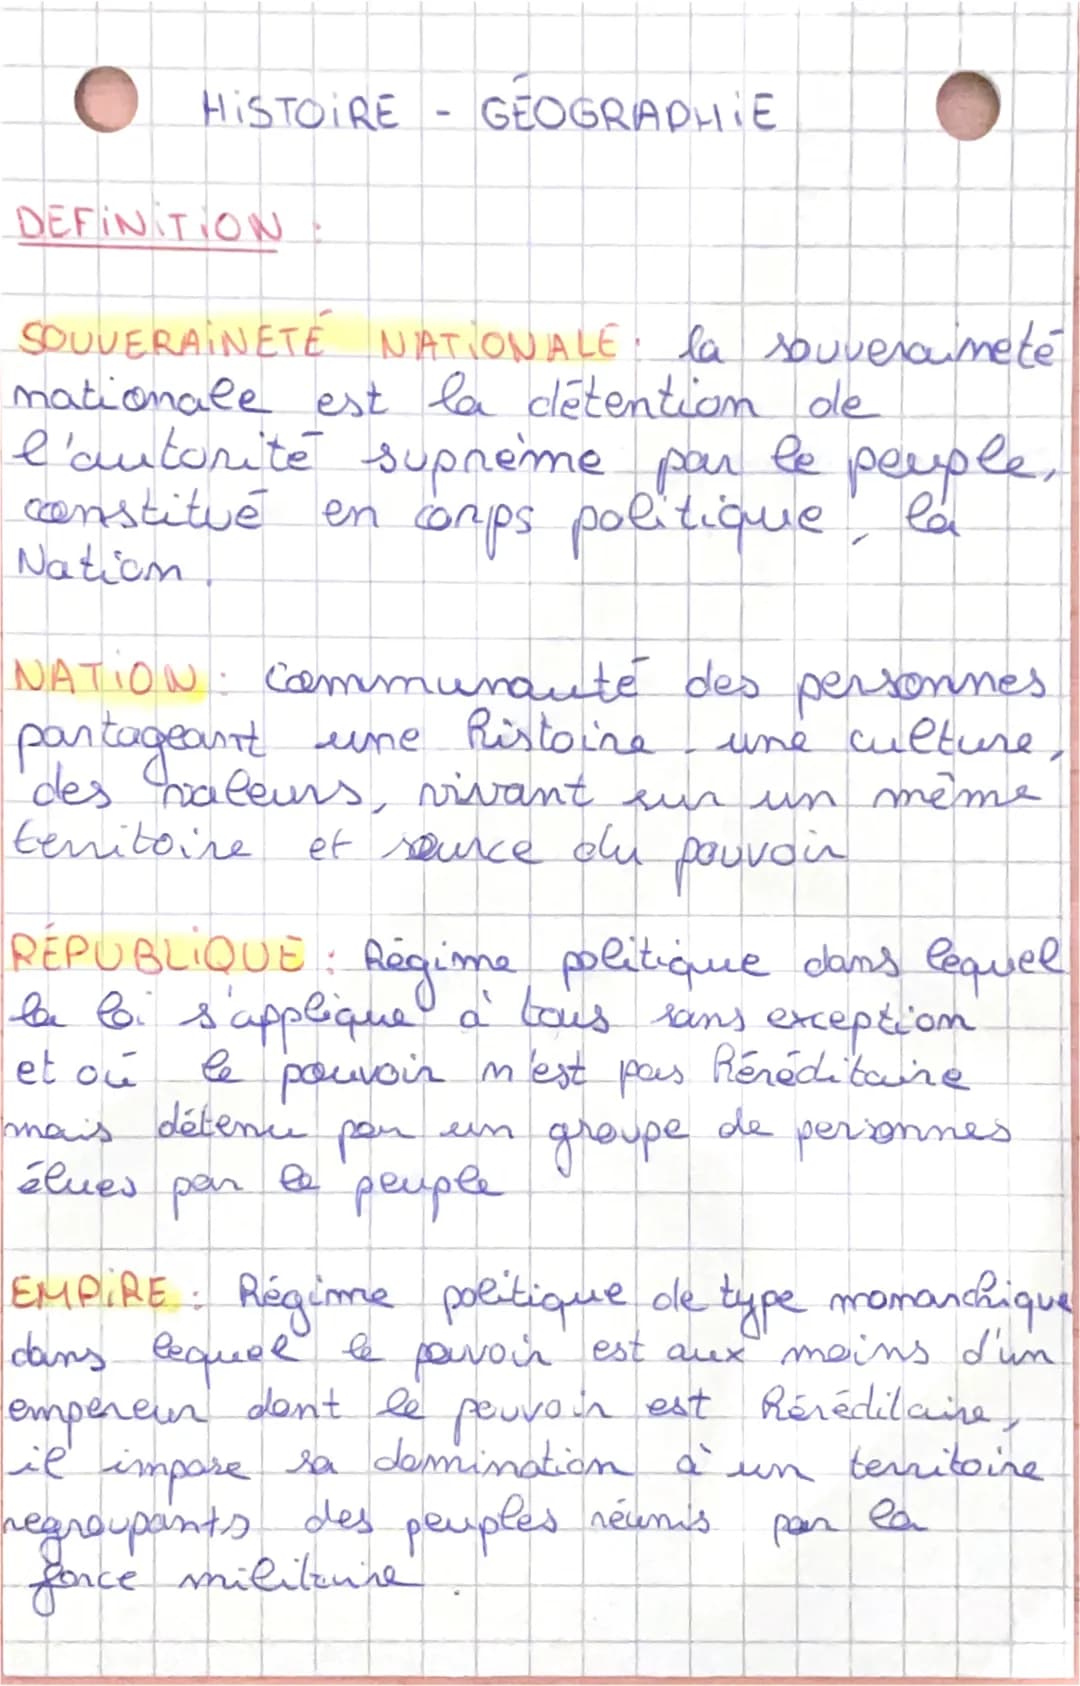 HiSTOiRE - GÉOGRAPHiE
DEFiNiTiON :
SOUVERAiNETÉ NATiONALE : la souveraineté
nationale est la détention de
l'autorité suprème par le peuple,
constitué en corps politique, la
Nation.
NATiON : Communauté des personnes
partageant une histoire, une culture,
des valeurs, vivant sur un même
territoire et source du pouvoir
RÉPUBLiQUE : Régime politique dans lequel
la loi s'applique à tous sans exception
et où le pouvoir n'est pas héréditaire
mais détenu par un groupe de personnes
élues par le peuple
EMPiRE : Régime politique de type monarchique
dans lequel le pouvoir est aux mains d'un
empereur dont le pouvoir est héréditaire,
il impose sa domination à un territoire
regroupants des peuples réunis par la
force militaire.